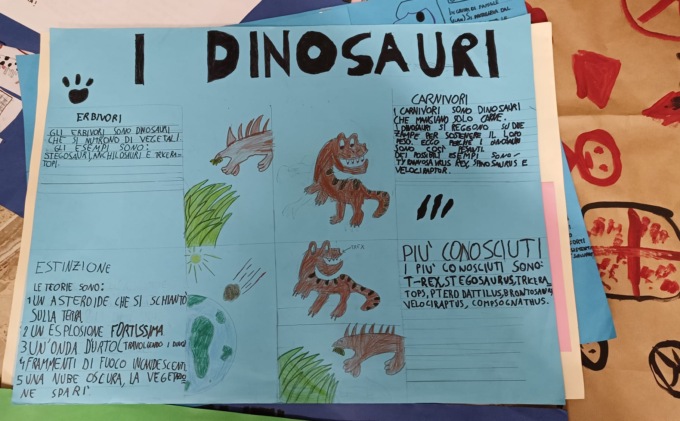 I DINOSAURI
ERBIVORI
GLI ERBIVORI SONO DINOSAURI
CHE SI NUTRONO DI VEGETALI
GLI ESEMPI SONO:
STEGOSAURI, ANCHILOSAURI E TRICERA-
TOPI.
CARNIVORI
I CARNIVORI SONO DINOSAURI
CHE MANGIANO SOLO CARNE.
I DINOSAURI SI REGGONO SU DUE
ZAMPE PER SOSTENERE IL LORO
PESO. ECCO PERCHÈ I
SONO COSÌ PESANTI
DEI POSSIBILI ESEMPI SONO-
TYRANNOSAURUS REX, SPINOSAURUS E
VELOCIRAPTOR.
ESTINZIONE
LE TEORIE SONO:
1 UN ASTEROIDE CHE SI SCHIANTÒ
SULLA TERRA
2 UN ESPLOSIONE FORTISSIMA
3 UN'ONDA D'URTO( TRAVOLGENDO I
4 FRAMMENTI DI FUOCO INCANDESCENTI
5 UNA NUBE OSCURA, LA VEGETAZIO
NE SPARÌ
PIU' CONOSCIUTI
I PIU' CONOSCIUTI SONO:
T-REX, STEGOSAURUS, TRICERA-
TOPS, PTERODATTILUS, BRONTOSAURUS
VELOCIRAPTUS, COMPSOGNATHUS.